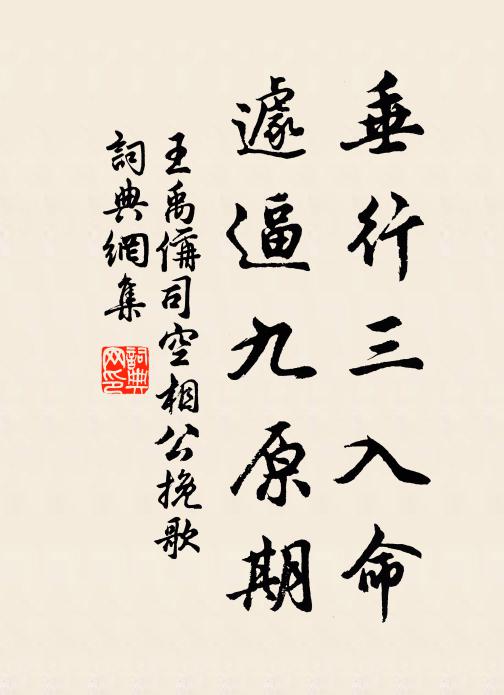 垂行三入命
遽逼九原期
王禹偁司空相公挽歌
詞典網集
詞典网印